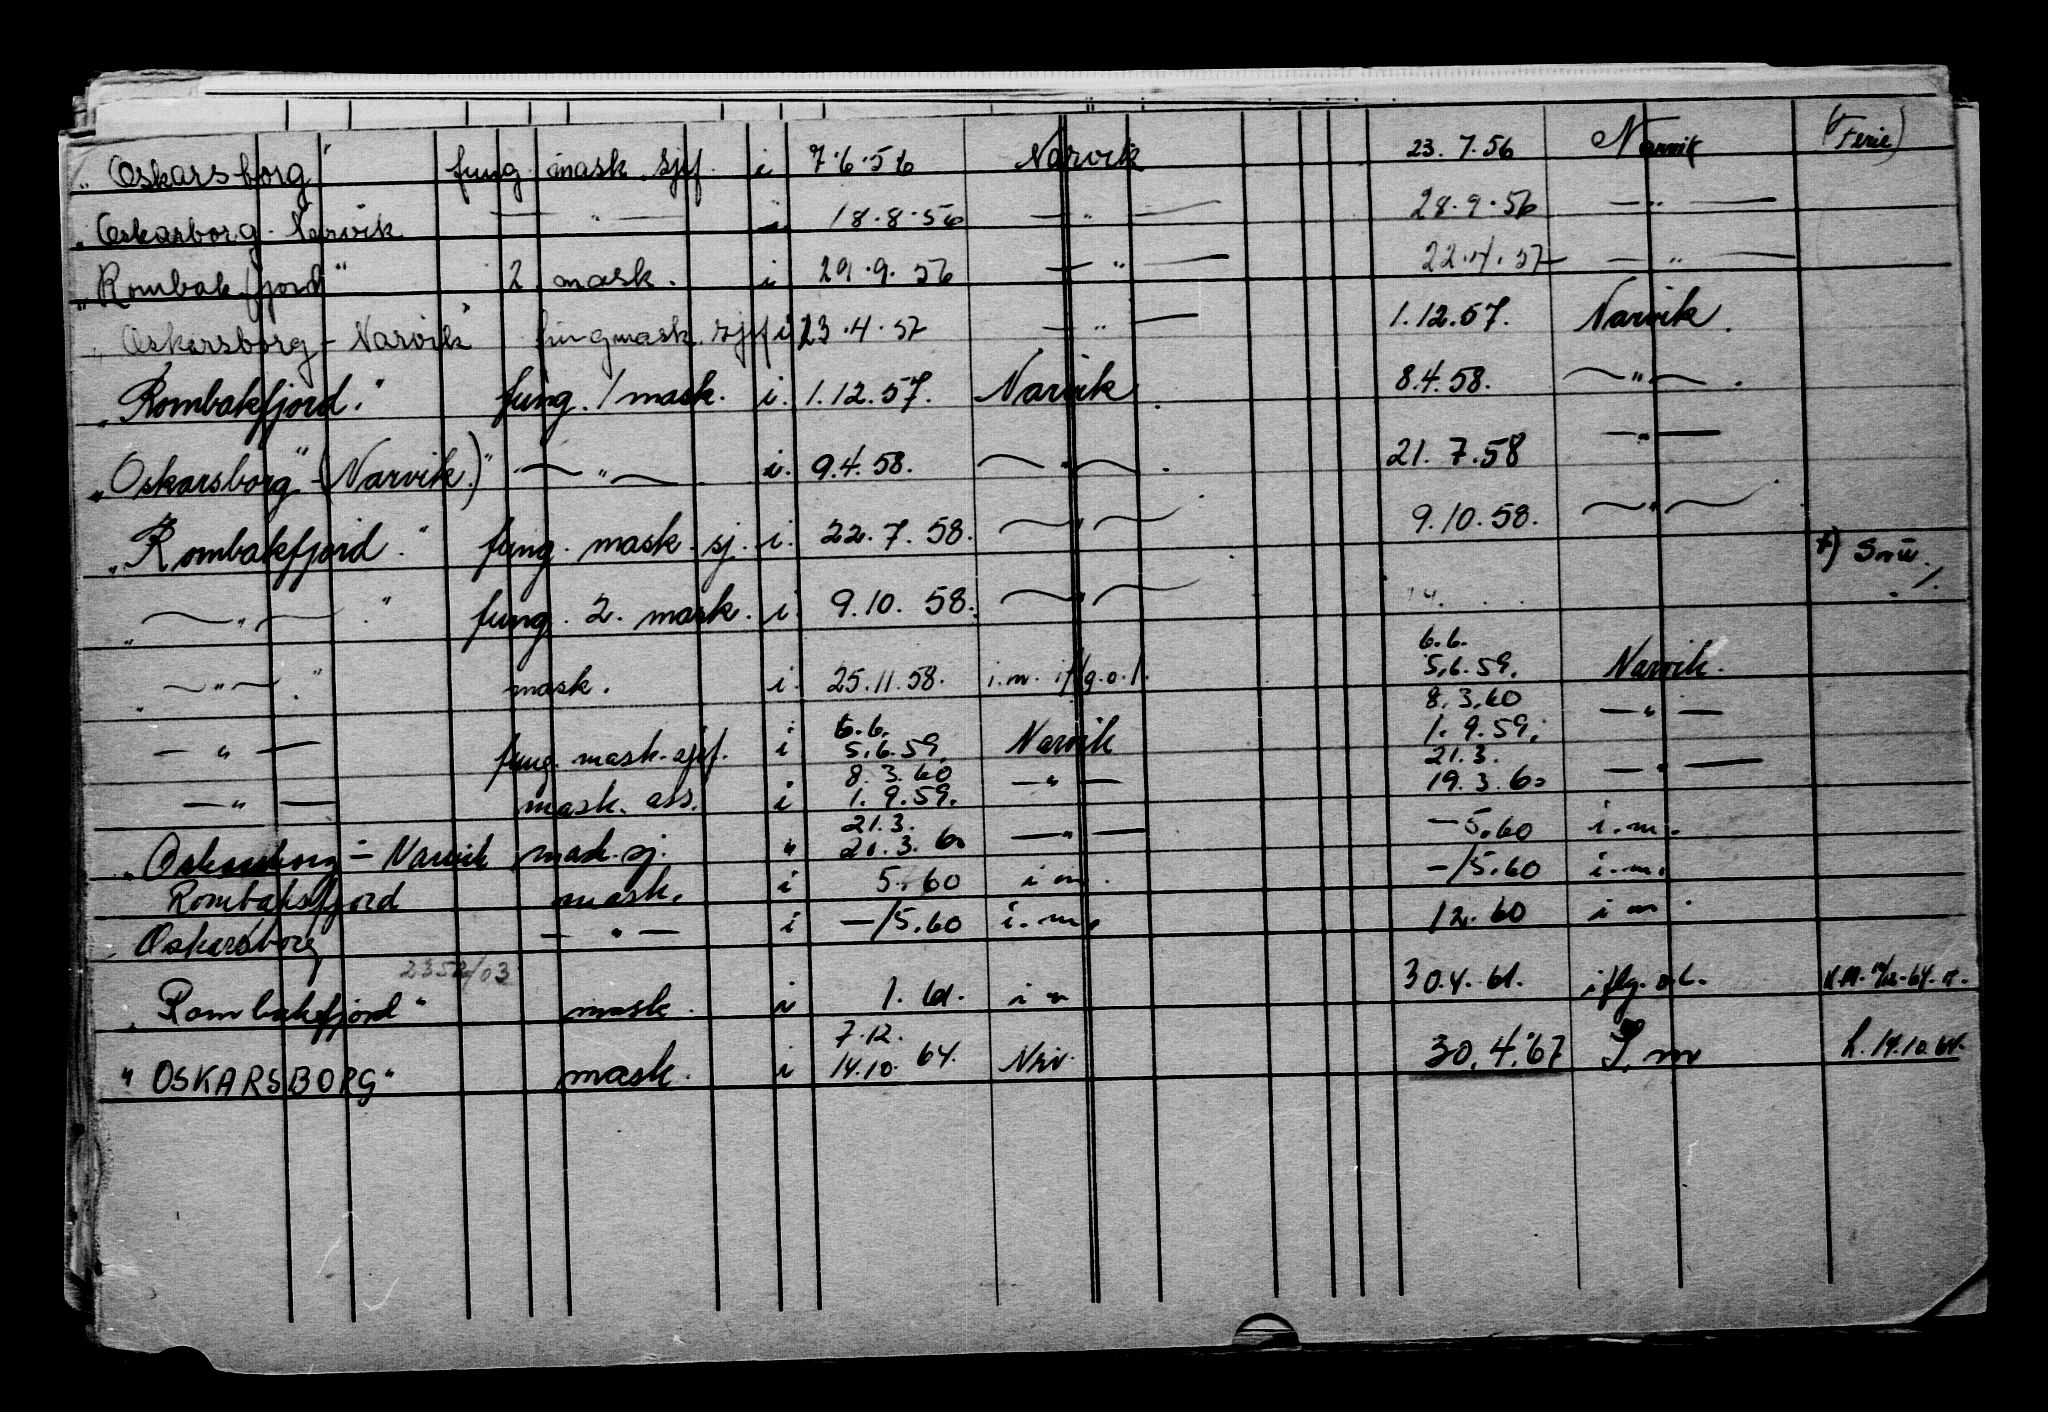 "Oskarsborg" fung. mask sjef. i 7.6.56 Narvik 23.7.56 Narvik (Ferie)
"Oskarsborg - Narvik — " — i 18.8.56 — " — 28.9.56 — " —
"Rombakfjord" 2 mask. i 29.9.56 — " — 22.4.57 — " —
"Oskarsborg - Narvik" fung mask. sjef i 23.4.57 — " — 1.12.57. Narvik.
"Rombakfjord." fung. 1 mask. i. 1.12.57. Narvik. 8.4.58. — " — .
"Oskarsborg" - (Narvik.)" — " — i. 9.4.58. — " — . 21.7.58 — " —
"Rombakfjord." fung. mask. sj. i. 22.7.58. — " — . 9.10.58. — " — .
" — " — ." fung. 2. mask. i 9.10.58. — " — +) Snu. ./.
" — " — ." mask. i. 25.11.58. i.m. iflg.o.l. 6.6. 5.6.59. Narvik.
— " — fung. mask. sjef. i 6.6. 5.6.59. Narvik 8.3.60 1.9.59. — " —
— " — mask. ass. i 8.3.60 1.9.59. — " — 21.3. 19.3.60 — " —
"Oskarsborg - Narvik mask. sj. " 21.3. 21.3.60 — " — -5.60 i.m.
Rombaksfjord mask. i 5.60 i m. -/5.60 i.m.
Oskarsborg — " — i -/5.60 i.m. 12.60 i m.
"Rombakfjord" mask. i 1.61. i m 30.4.61. iflg. o.l.
"OSKARSBORG" mask. i 7.12. 14.10.64. Nrv. 30.4.67 I.m h. 14.10.64.